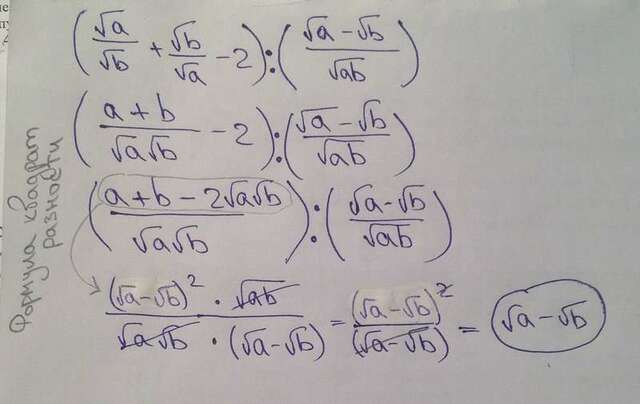 (√a/√b + √b/√a − 2) : ((√a − √b)/√ab)
((a + b)/(√a√b) − 2) : ((√a − √b)/√ab)
((a + b − 2√a√b)/(√a√b)) : ((√a − √b)/√ab)
Формула квадрат
разности
((√a − √b)² · √ab)/(√a√b · (√a − √b)) = (√a − √b)²/(√a − √b) = √a − √b